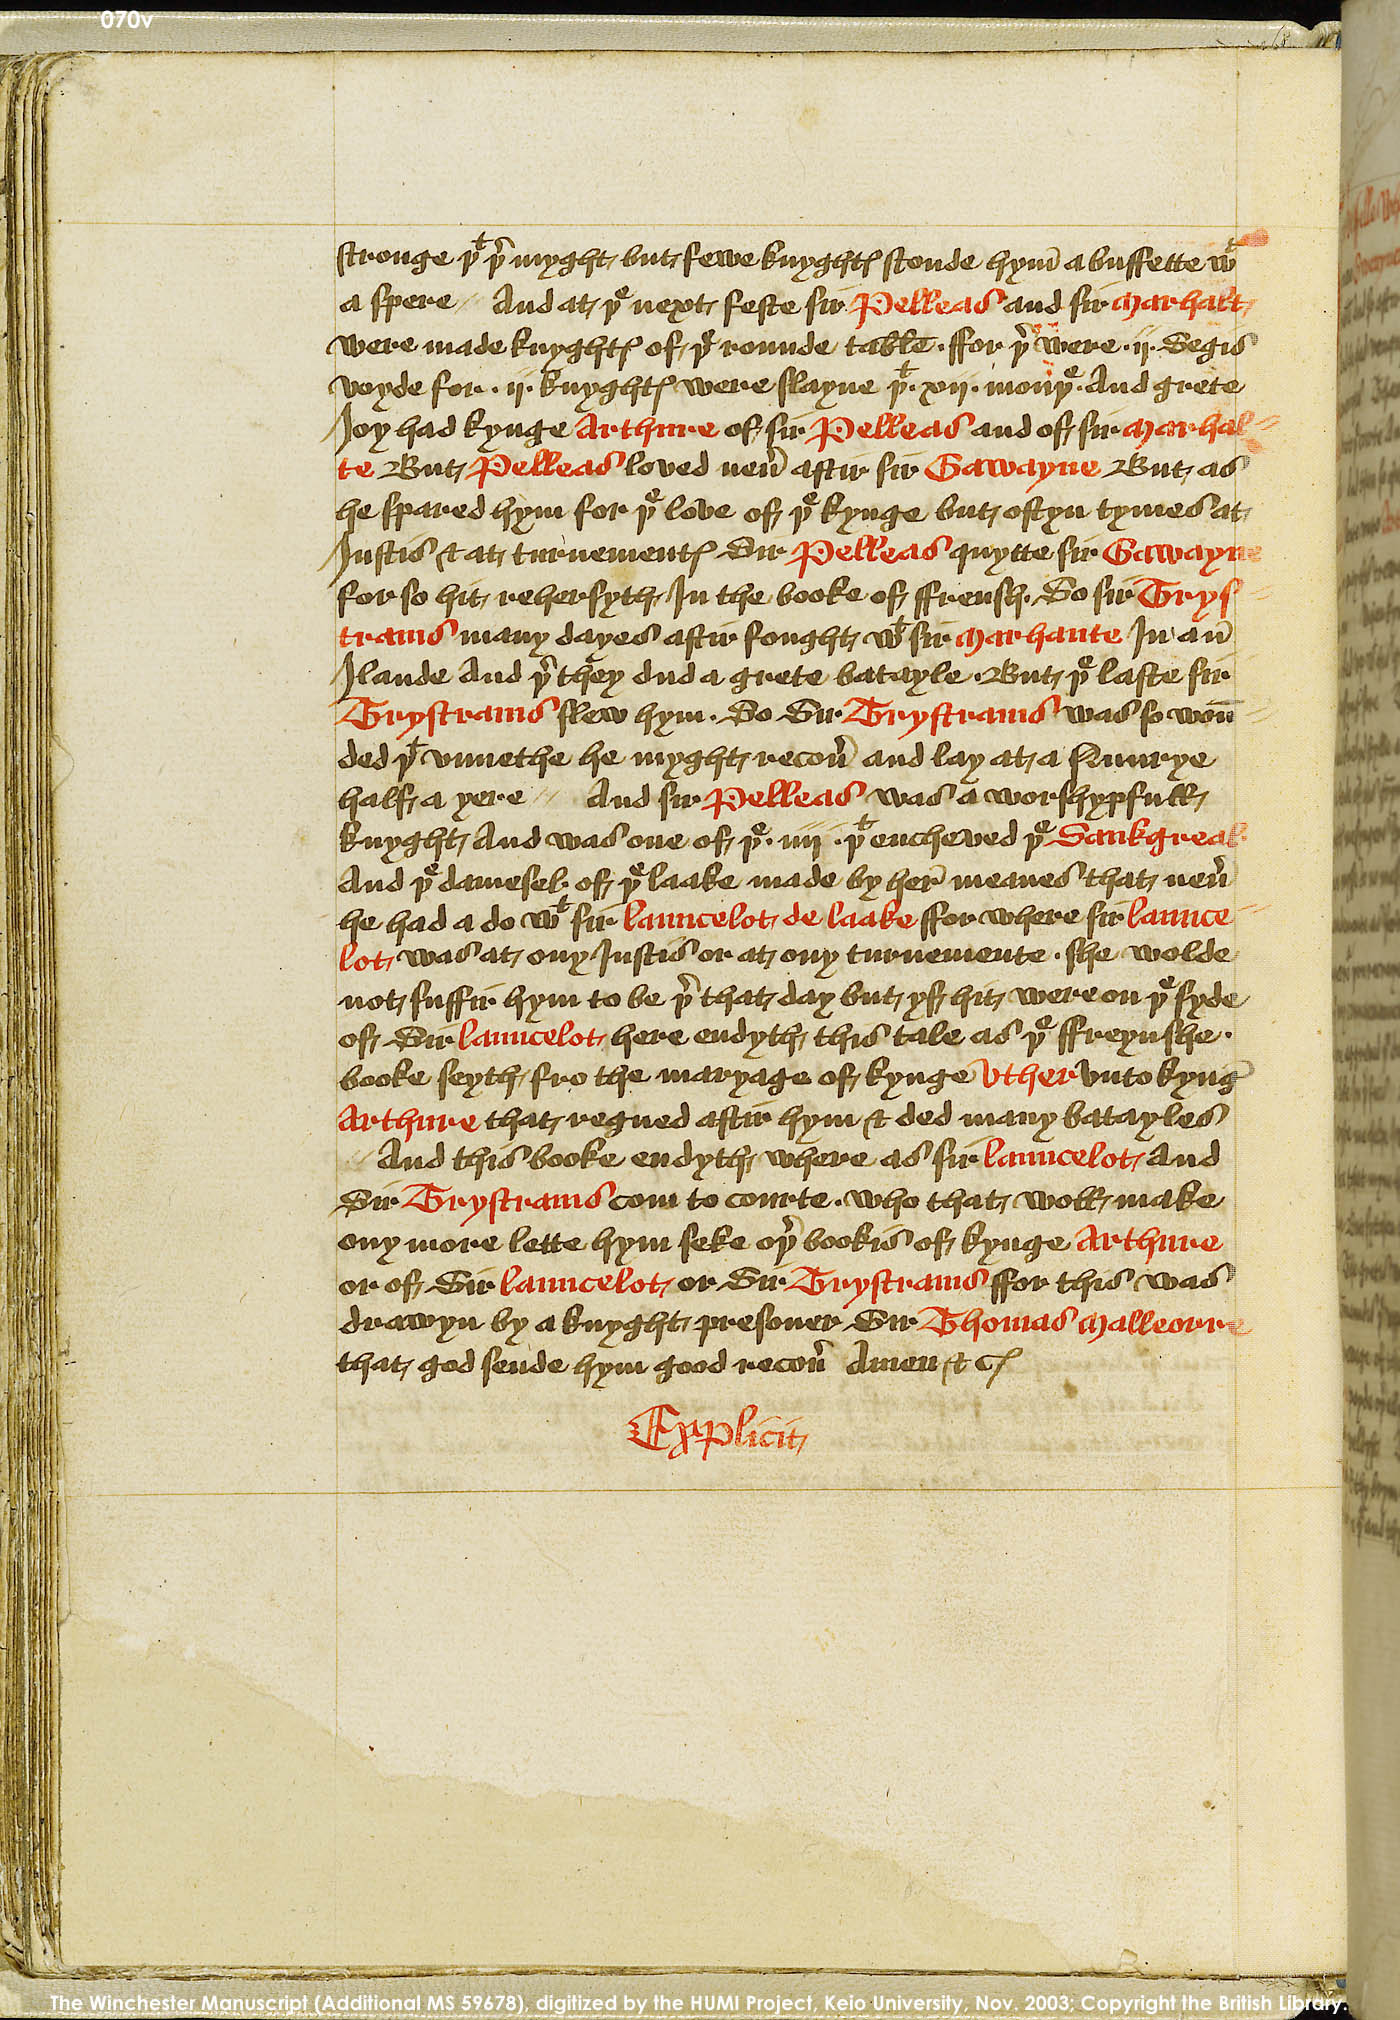 070v
stronge þͭ þ̉ myght but fewe knyghtꝭ stonde hym̄ a buffette wͭ
a spere // And at þͤ next feste sir Pelleas and sir Marhalt
were made knyghtꝭ of þͤ rounde table . ffor þ̉ were . ij . Segis
voyde for . ij . knyghtꝭ were slayne þͭ . xij . monþͤ . And grete
Joy had kynge Arthure of sir Pelleas and of sir Marhal=
te But Pelleas loved neủ aftir sir Gawayne But as
he spared hym for þͤ love of þͤ kynge but oftyn tymes at
Justis & at turnementꝭ Sir Pelleas quytte sir Gawayne
for so hit rehersyth In the booke of ffrensh . So sir Trys=
trams many dayes aftir fought wͭ sir Marhaute In an̄
Ilande And þ̉ they dud a grete batayle . But þͤ laste sir
Trystrams slew hym . So Sir Trystrams was so woū=
ded þͭ vnnethe he myght recoủ and lay at a Nunrye
half a yere // And sir Pelleas was a worshypfull
knyght And was one of þͤ . iiij . þͭ encheved þͤ Sankgreal
And þͤ damesel of þͤ laake made by her̄ meanes that neủ
he had a do wͭ sir launcelot de laake ffor where sir launce=
lot was at ony Justis or at ony turnemente . she wolde
not suffir hym to be þ̉ that day but yf hit were on þͤ syde
of Sir launcelot here endyth this tale as þͤ ffreynshe .
booke seyth fro the maryage of kynge Vther vnto kyng̉
Arthure that regned aftir hym & ded many batayles
// And this booke endyth where as sir launcelot And
Sir Trystrams com to courte . who that woll make
ony more lette hym seke oþ̉ bookis of kynge Arthure
or of Sir launcelot or Sir Trystrams ffor this was
drawyn by a knyght presoner Sir Thomas Malleorre
that god sende hym good recoủ Amen & cꝭ
Explicit
The Winchester Manuscript (Additional MS 59678), digitized by the HUMI Project, Keio University, Nov. 2003; Copyright the British Library.